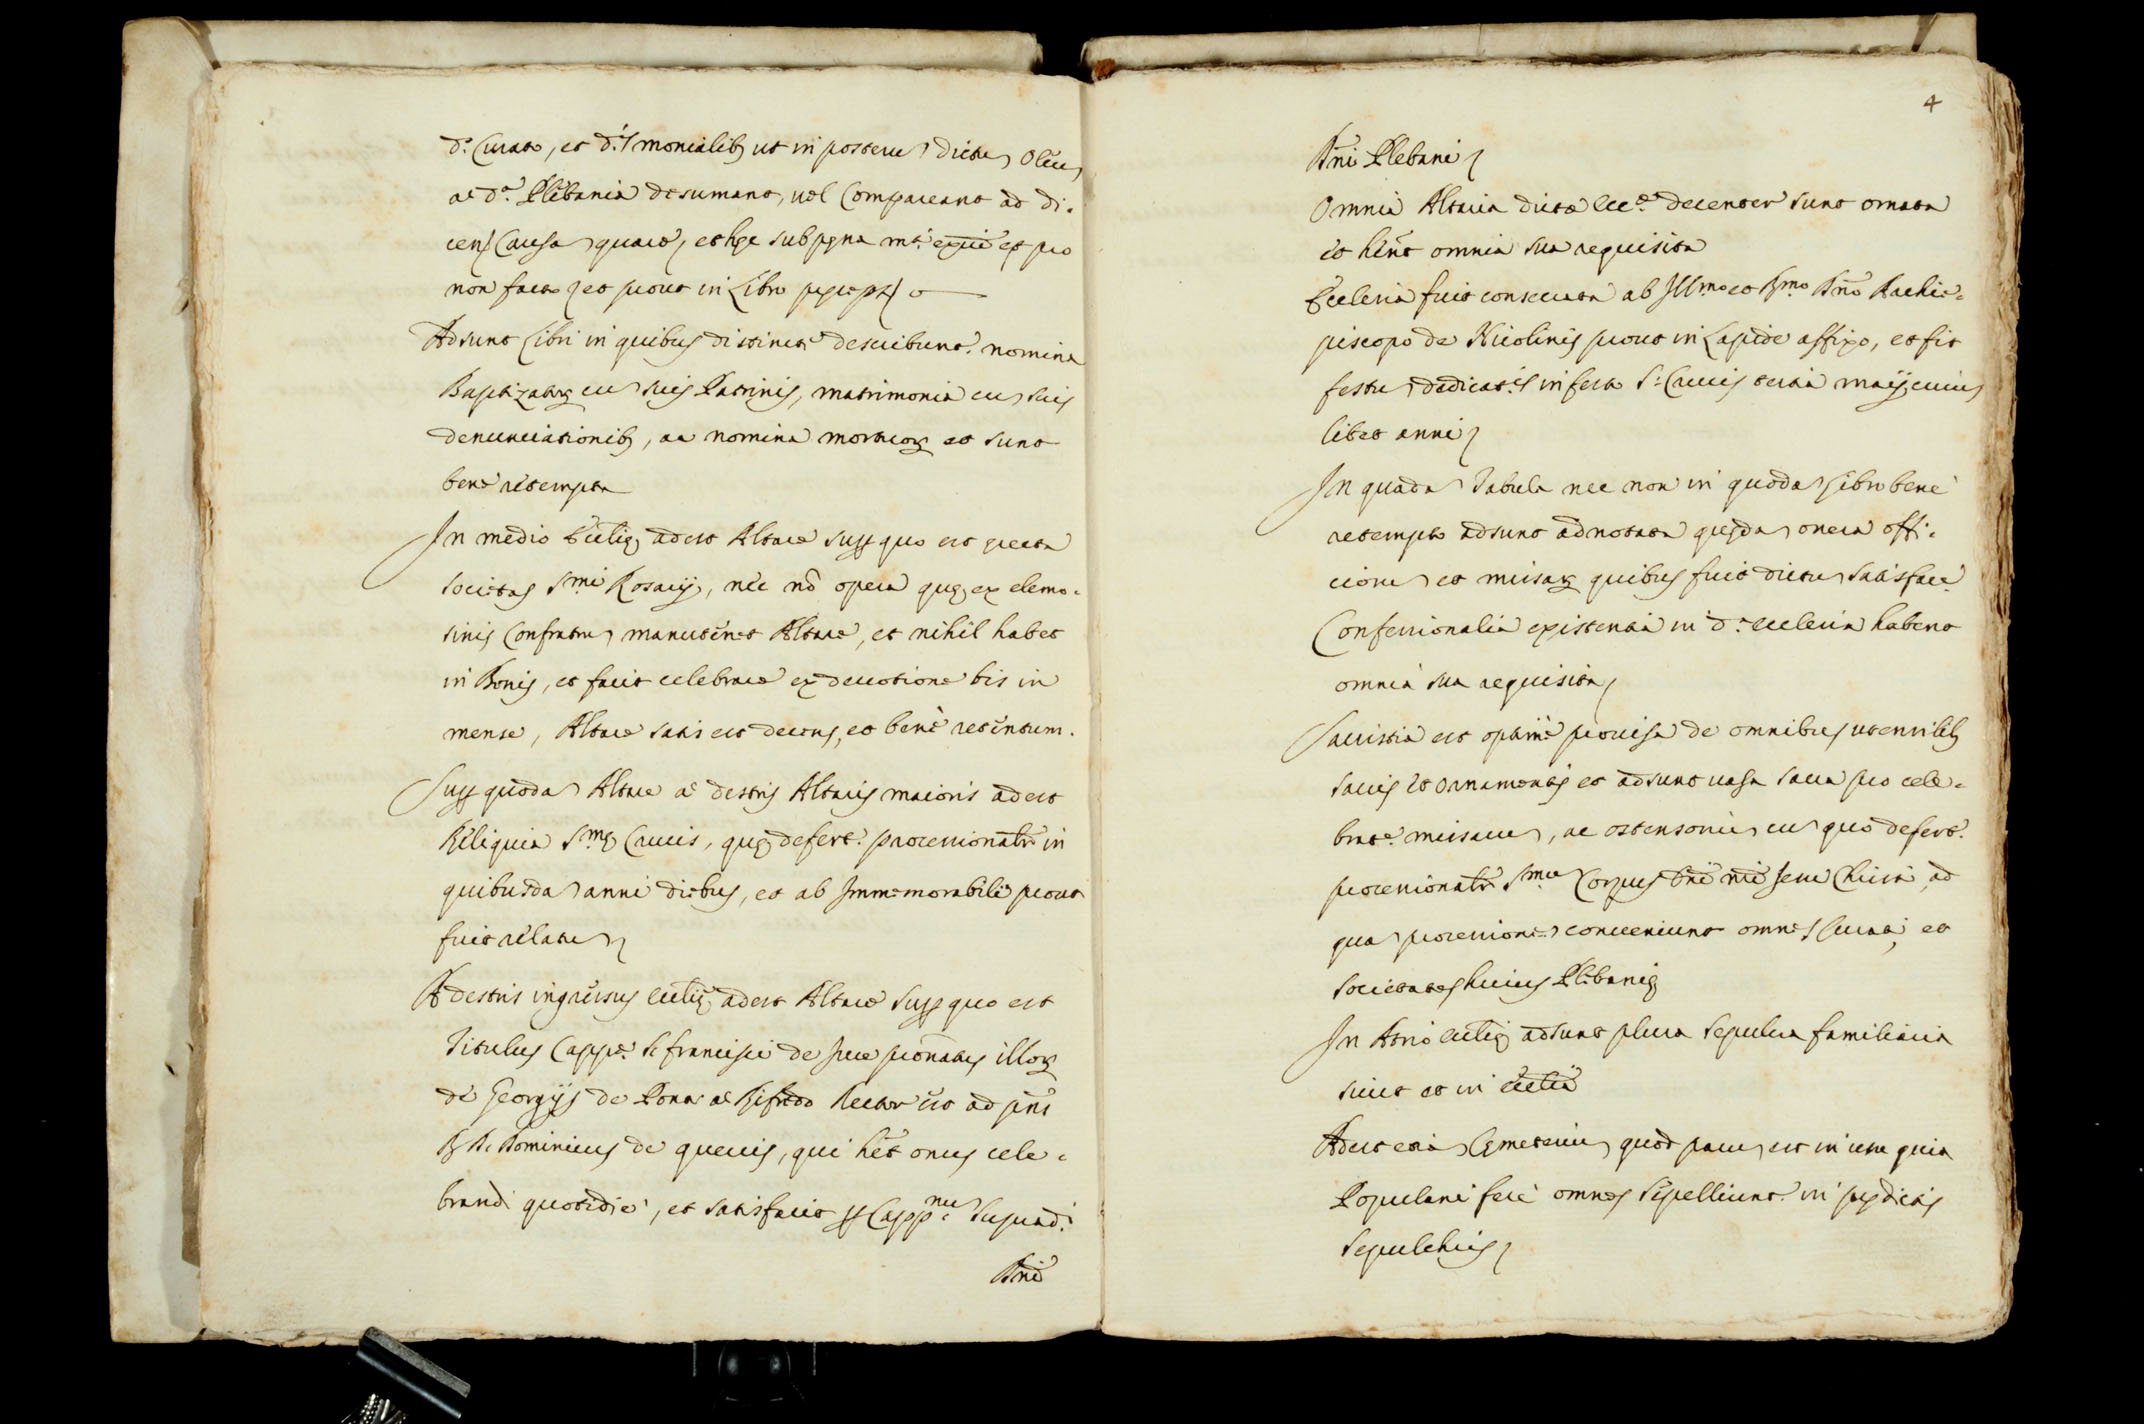 d.º Curato, et d.is monialib; ut in posteru dictu Oleu
a d.ª Plebania desumant, uel Compareant ad di-
cen Causa quare, et hec sub pena
non facto et prout in Libro
Adsunt Libri in quibus distincte describunt. nomina
Baptizator; cu suis Patrinis, matrimonia cu suis
denunciationib;, ac nomina mortuor; et sunt
bene retempta
In medio Ecclię adest Altare supp quo est erecta
Societas S.mi Rosarij, nec nō opera quę ex elemo-
sinis Confratru manutenet Altare, et nihil habet
in Bonis, et facit celebrare ex deuotione bis in
mense, Altare satis est decens, et benè retentum.
Supp quoda Altare a dextris Altaris maioris adest
Reliquia S.mę Crucis, quę defert. processionatr in
quibusda anni diebus, et ab Immemorabili prout
fuit relatu
A dextris ingressus ecclię adest Altare supp quo est
Titulus Cappe. S. francisci de Jure pronatus illor;
de Georgijs de Rector est ad pns
R. D. Dominicus de queuis, qui het onus cele-
brandi quotidie, et satisfacit p Cappnu
Dni
4
Dni Plebani
Omnia Altaria dictę Ecc.ę decenter sunt ornata
et hent omnia sua requisita
Ecclesia fuit consecrata ab Ill.mo et R.mo Dno Archie-
piscopo de Nicolinis prout in Lapide affixo, et fit
festu dedicat.is in festo S. Crucis tertia maij cuius
libet anni
In quada Tabula nec non in quoda Libro bene
retempto adsunt adnotata queda onera offi-
cioru et missar; quibus fuit dictu satisfac.
Confessionalia existentia in d.ª ecclesia habent
omnia sua requisita
Sacristia est optimè prouisa de omnibus utensilib;
sacris et ornamentis et adsunt uasa sacra pro cele-
brat.e missaru, ac ostensoriu cu quo defert.
processionatr S.mu Corpus Dni nri Jesu Christi, ad
qua processione conueniunt omnes Curati, et
societates huius Plebanię
In Atrio ecclię adsunt plura sepulcra familiaria
sicut et in ecclia
Adest etia Cęmeteriu quod paru est in usu quia
Populani ferè omnes sepelliunt. in predictis
sepulchris